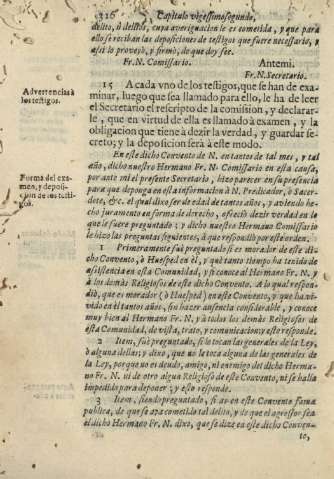 326 Capitulo vigessimosegundo,
delito, ò delitos, cuya averiguacion le es cometida, y que para
ello se reciban las deposiciones de testigos que fuere necessario, y
assi lo proveyò, y firmò, de que doy fee.
Fr. N. Comissario. Antemi.
Fr. N. Secretario.
Advertencias à
los testigos.
15 A cada vno de los testigos, que se han de exa-
minar, luego que sea llamado para ello, le ha de leer
el Secretario el rescripto de la comission, y declarar-
le, que en virtud de ella es llamado à examen, y la
obligacion que tiene à dezir la verdad, y guardar se-
creto; y la deposicion serà à este modo.
Forma del exa-
men, y deposi-
cion de los testi-
gos.
En este dicho Convento de N. en tantos de tal mes, y tal
año, dicho nuestro Hermano Fr. N. Comissario en esta causa,
por ante mi el presente Secretario, hizo parecer en su presencia
para que deponga en esta informacion à N. Predicador, ò Sacer-
dote, &c. el qual dixo ser de edad de tantos años, y aviendo he-
cho juramento en forma de derecho, ofreciò dezir verdad en lo
que le fuere preguntado; y dicho nuestro Hermano Comissario
le hizo las preguntas siguientes, à que respondiò por este orden.
1 Primeramente fuè preguntado si es morador de este di-
cho Convento, ò Huesped en èl, y què tanto tiempo ha tenido de
assistencia en esta Comunidad, y si conoce al Hermano Fr. N. y
à los demàs Religiosos de este dicho Convento. A lo qual respon-
diò, que es morador (ò Huesped) en este Convento, y que ha vi-
vido en èl tantos años, sin hazer ausencia considerable, y conoce
muy bien al Hermano Fr. N. y à todos los demàs Religiosos de
esta Comunidad, de vista, trato, y comunicacion; y esto responde.
2 Item, fuè preguntado, si le tocan las generales de la Ley,
ò alguna de ellas; y dixo, que no le toca alguna de las generales de
la Ley, porque no es deudo, amigo, ni enemigo del dicho Herma-
no Fr. N. ni de otro algun Religioso de este Convento, ni se halla
impedido para deponer; y esto responde.
3 Item, siendo preguntado, si ay en este Convento fama
publica, de que se aya cometido tal delito, y de que el agressor sea
el dicho Hermano Fr. N. dixo, que se dize en este dicho Conven-
to,